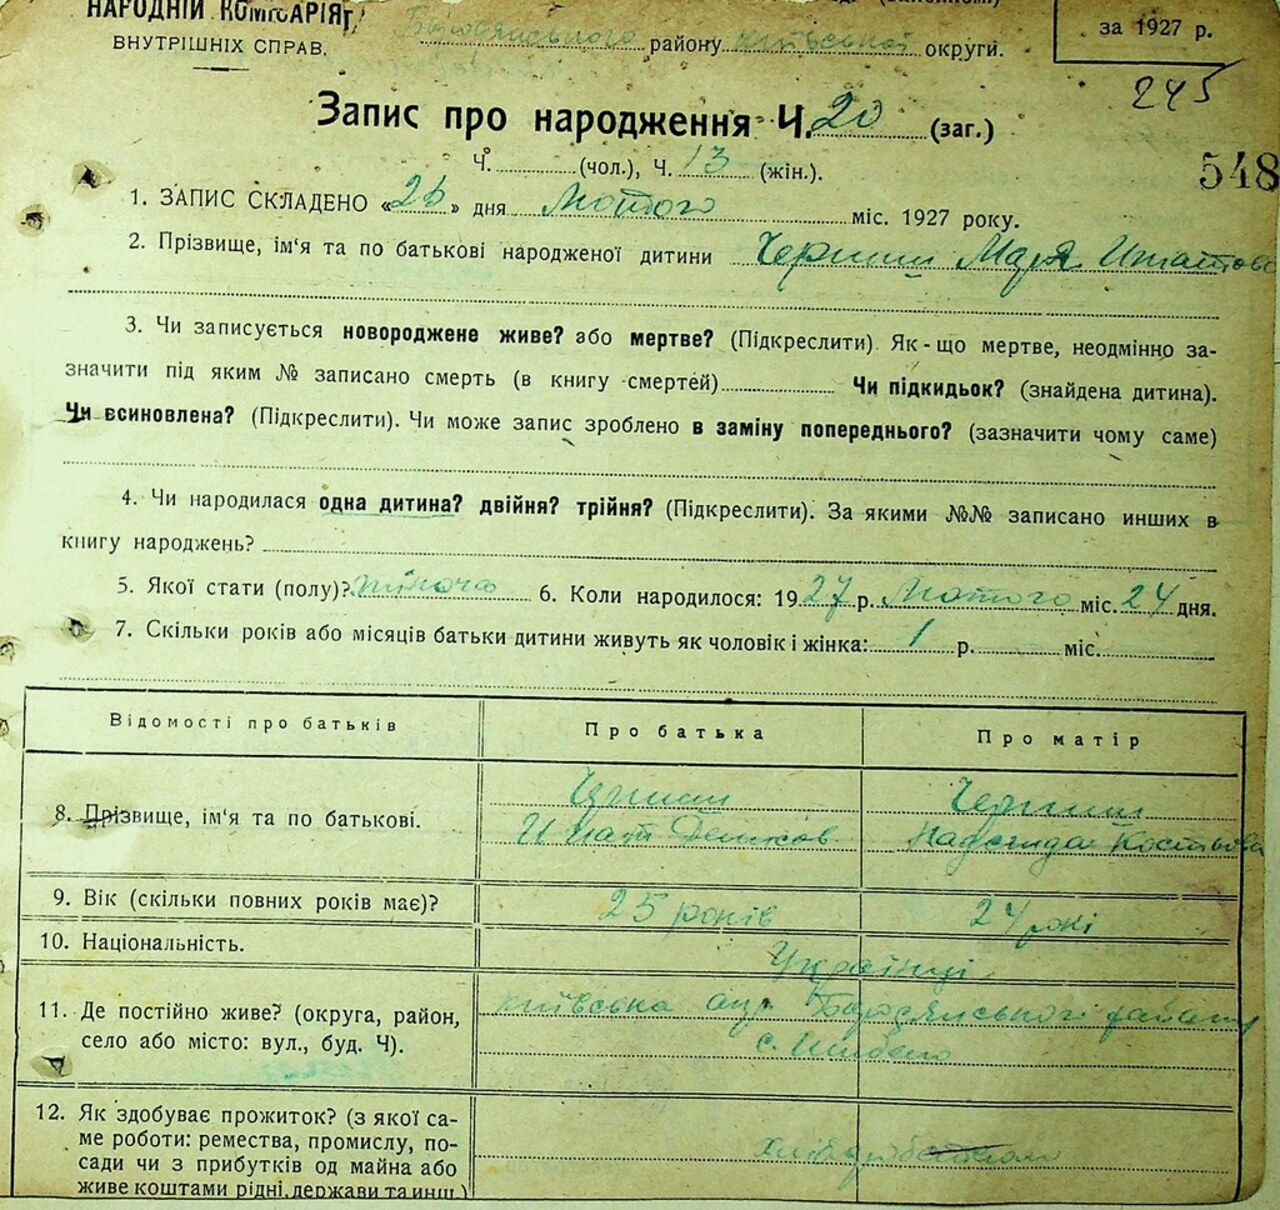 НАРОДНІЙ КОМІСАРІЯТ
ВНУТРІШНІХ СПРАВ.
Бородянського району Київської округи.
за 1927 р.
245
Запис про народження Ч. 20 (заг.)
Ч. (чол.), Ч. 13 (жін.).
548
1. ЗАПИС СКЛАДЕНО « » дня Лютого міс. 1927 року.
2. Прізвище, ім'я та по батькові народженої дитини Черниш Марія
3. Чи записується новороджене живе? або мертве? (Підкреслити). Як-що мертве, неодмінно за-
значити під яким № записано смерть (в книгу смертей) Чи підкидьок? (знайдена дитина).
Чи всиновлена? (Підкреслити). Чи може запис зроблено в заміну попереднього? (зазначити чому саме)
4. Чи народилася одна дитина? двійня? трійня? (Підкреслити). За якими №№ записано инших в
книгу народжень?
5. Якої стати (полу)? жіноча 6. Коли народилося: 1927 р. Лютого міс. 24 дня.
7. Скільки років або місяців батьки дитини живуть як чоловік і жінка: 1 р. міс.
Відомості про батьків Про батька Про матір
8. Прізвище, ім'я та по батькові.
Черниш Черниш
Надежида Костьова
9. Вік (скільки повних років має)? 25 років 24 рокі
10. Національність. Українці
11. Де постійно живе? (округа, район,
село або місто: вул., буд. Ч).
Київська окр. Бородянського району
с.
12. Як здобуває прожиток? (з якої са-
ме роботи: ремества, промислу, по-
сади чи з прибутків од майна або
живе коштами рідні, держави та инш.)